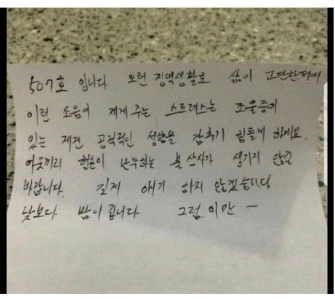 507호 입니다 오랜 징역생활로 삶이 고단한터에
이런 소음이 제게 주는 스트레스는 조울증이
있는 제겐 공격적인 성향을 감추기 힘들게 하네요.
이웃끼리 칼춤이 난무하는 불산사가 생기지 않길
바랍니다. 길게 얘기 하지 않겠습니다
낮보다 밤이 깁니다 그럼 이만 —